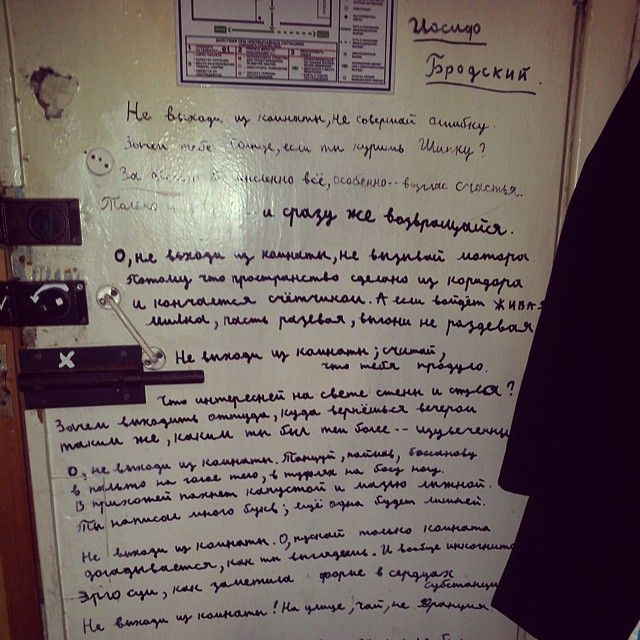 Иосиф
Бродский.
Не выходи из комнаты, не совершай ошибку.
Зачем тебе Солнце, если ты куришь Шипку?
За дверью бессмысленно всё, особенно -- возглас счастья.
Только
и сразу же возвращайся.
О, не выходи из комнаты, не вызывай мотора.
Потому что пространство сделано из коридора
и кончается счётчиком. А если войдёт живая
милка, пасть разевая, выгони не раздевая
Не выходи из комнаты; считай,
что тебя продуло.
Что интересней на свете стены и стула?
Зачем выходить оттуда, куда вернёшься вечером
таким же, каким ты был, тем более -- изувеченным
О, не выходи из комнаты. Танцуй, поймав, боссанову
в пальто на голое тело, в туфлях на босу ногу.
В прихожей пахнет капустой и мазью лыжной.
Ты написал много букв; ещё одна будет лишней.
Не выходи из комнаты. О, пускай только комната
догадывается, как ты выглядишь. И вообще инкогнито
эрго сум, как заметила форме в сердцах
субстанция
Не выходи из комнаты! На улице, чай, не Франция